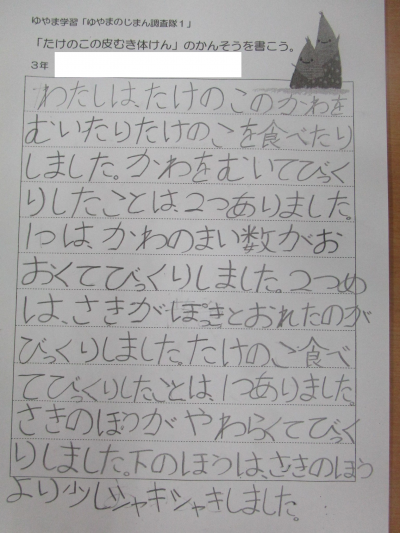 ゆやま学習「ゆやまのじまん調査隊1」
「たけのこの皮むき体けん」のかんそうを書こう。
3年
わたしは、たけのこのかわを
むいたりたけのこを食べたり
しました。かわをむいてびっく
りしたことは、2つありました。
1つは、かわのまい数がお
おくてびっくりしました。2つめ
は、さきがぽっきとおれたのが
びっくりしました。たけのこ食べ
てびっくりしたことは、1つありました。
さきのほうがやわらくてびっく
りしました。下のほうは、さきのほう
より少しシャキシャキしました。